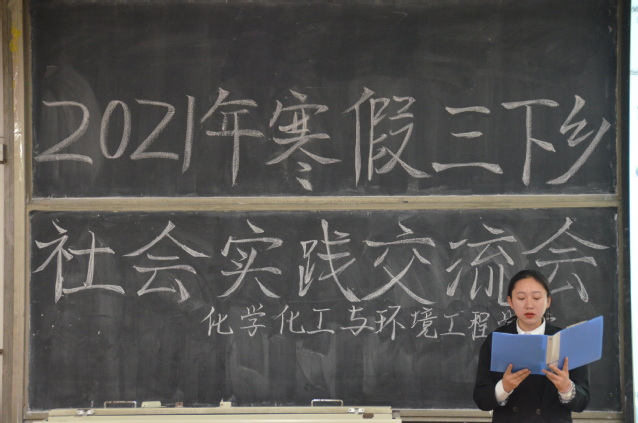 2021年寒假三下乡
社会实践交流会
化学化工与环境工程学